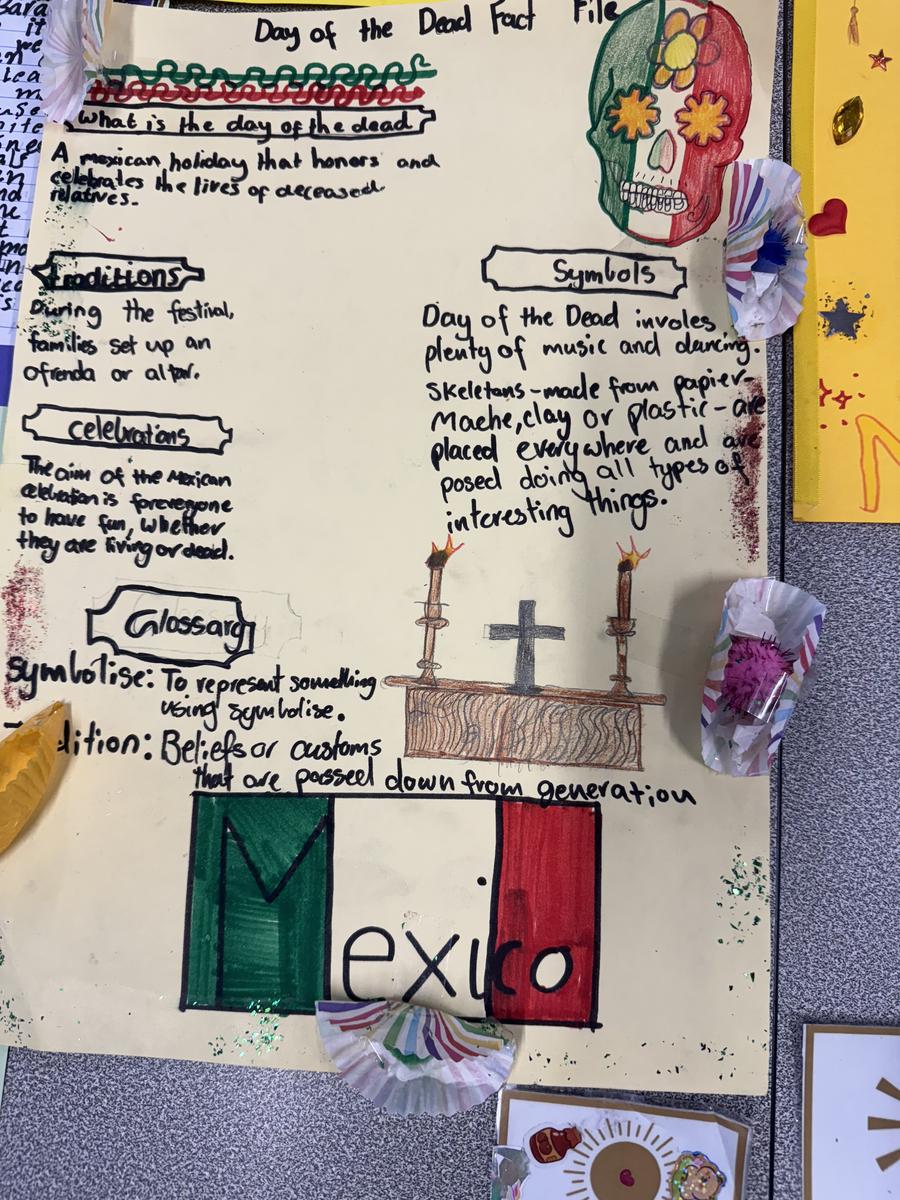 Day of the Dead Fact File
What is the day of the dead
A mexican holiday that honors and
celebrates the lives of deceased
relatives.
Traditions
During the festival,
families set up an
ofrenda or altar.
celebrations
The aim of the Mexican
celebration is for everyone
to have fun, whether
they are living or dead.
Symbols
Day of the Dead involes
plenty of music and dancing.
Skeletons - made from papier-
Mache, clay or plastic - are
placed everywhere and are
posed doing all types of
interesting things.
Glossary
Symbolise: To represent something
using symbolise.
dition: Beliefs or customs
that are passed down from generation
Mexico